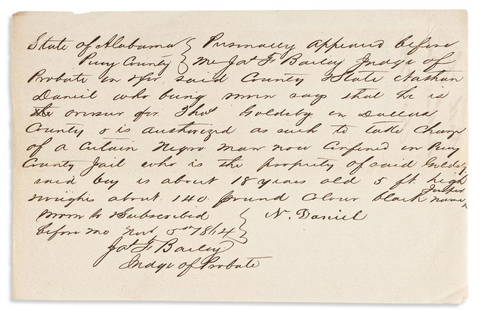 State of Alabama } Personally appeared before
Perry County } Me Jos F Bailey Judge of
Probate in & for said County & State Nathan
Daniel who being sworn says that he is
the overseer for Thos Goldsby in Dallas
County & is authorized as such to take Charge
of a Certain Negro man now Confined in Perry
County Jail who is the property of said Goldsby
said boy is about 18 years old 5 ft high
weighs about 140 pound Colour black name
Sworn to & Subscribed } N. Daniel
before me Nov 5th 1864
Jos F Bailey
Judge of Probate